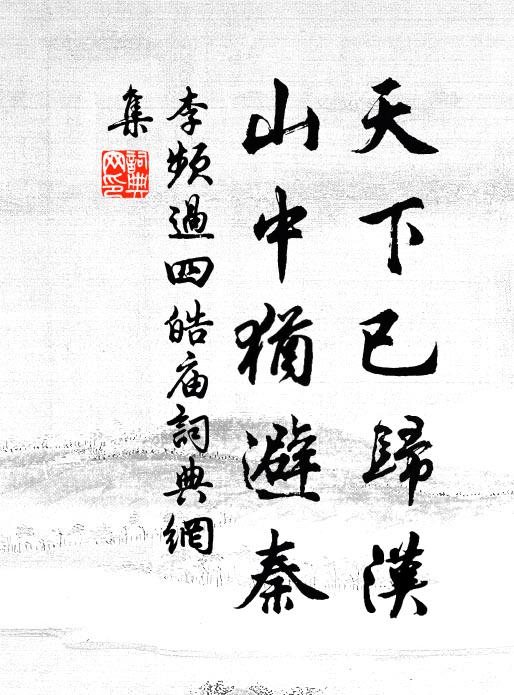 天下已歸漢
山中猶避秦
李頻過四皓庙詞典網
集
詞典
网印